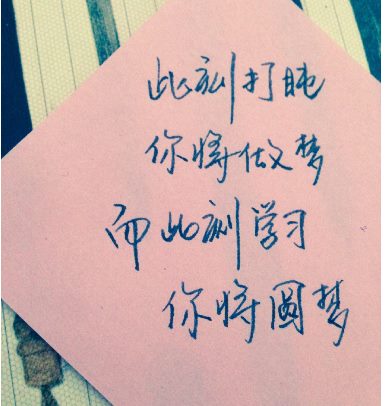 此刻打盹
你将做梦
而此刻学习
你将圆梦